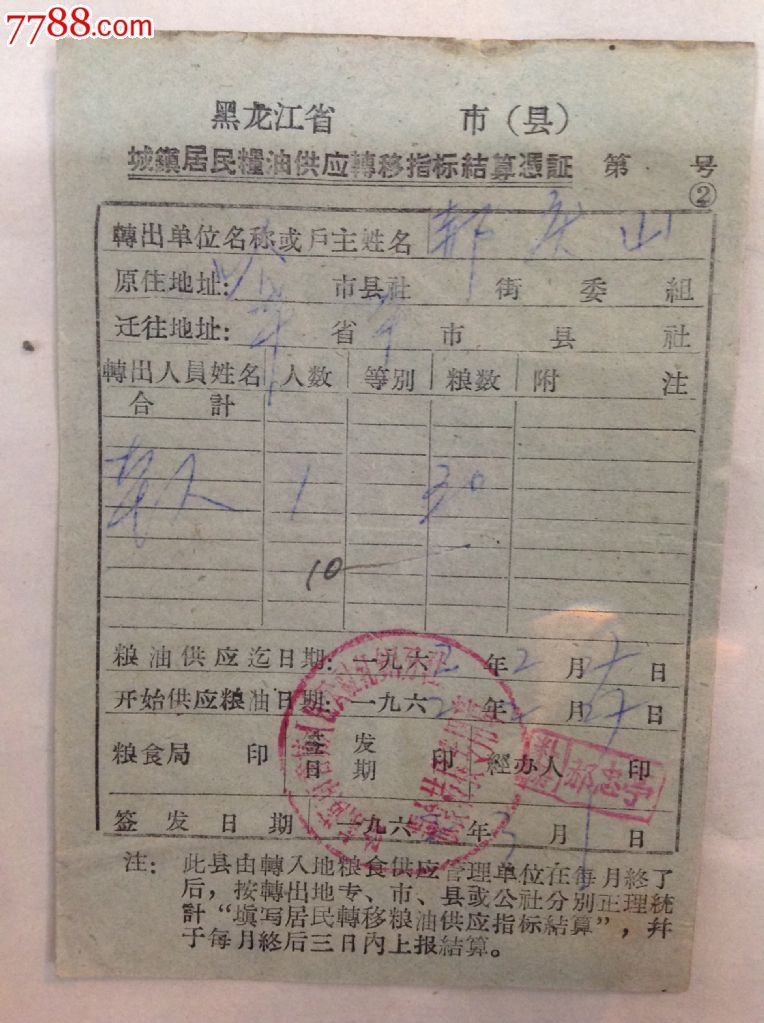 7788.com
黑龙江省 市(县)
城鎮居民糧油供应轉移指标結算憑証 第 号
②
轉出单位名称或戶主姓名 山
原住地址: 市县社 街 委 組
迁往地址: 省 市 县 社
轉出人員姓名 人数 等別 粮数 附 注
合 計
本人 1 30
10
粮油供应迄日期:一九六2年2月27日
开始供应粮油日期:一九六2年2月27日
粮食局 印 签发日期 印 經办人 印
郝忠
签发日期 一九六 年3月1日
注: 此县由轉入地粮食供应管理单位在每月終了
后,按轉出地专、市、县或公社分别正理統
計“填写居民轉移粮油供应指标結算”,幷
于每月終后三日內上报結算。